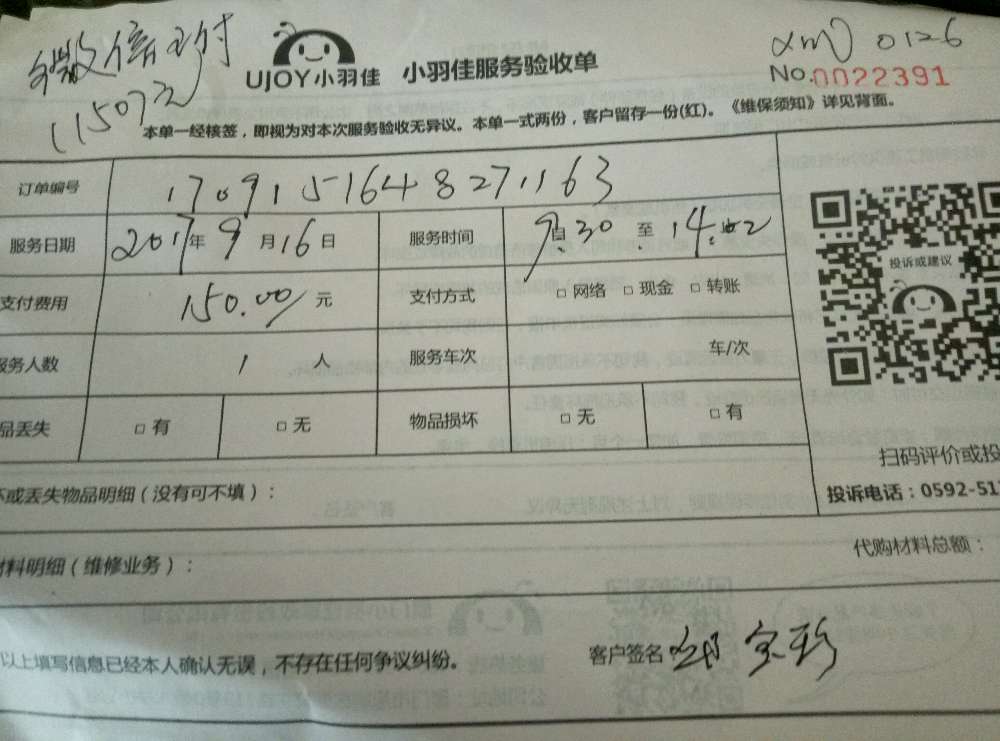 微信支付
150元
xm 0126
UJOY小羽佳 小羽佳服务验收单
No.0022391
本单一经核签，即视为对本次服务验收无异议。本单一式两份，客户留存一份(红)。《维保须知》详见背面。
订单编号 1709151648271163
服务日期 2017年9月16日 服务时间 9:30 至 14:02
支付费用 150.00 元 支付方式 □ 网络 □ 现金 □ 转账
投诉或建议
服务人数 1 人 服务车次 车/次
品丢失 □ 有 □ 无 物品损坏 □ 无 □ 有
扫码评价或投
投诉电话：0592-51
坏或丢失物品明细（没有可不填）：
代购材料总额：
材料明细（维修业务）：
以上填写信息已经本人确认无误，不存在任何争议纠纷。
客户签名